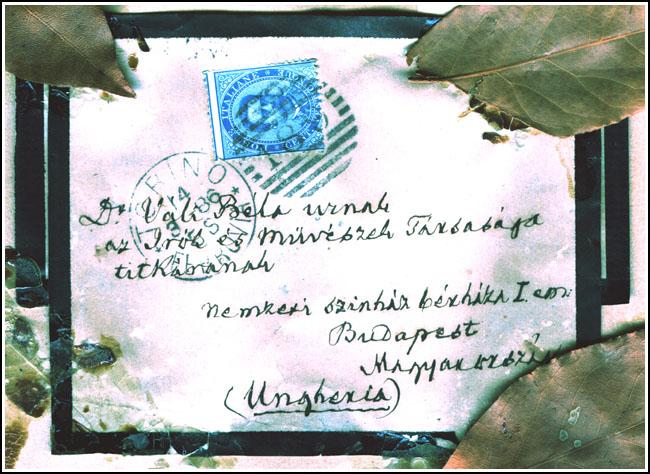 ITALIANE
TORINO
14
86
Dr Váli Béla urnak
az Irók és Művészek Társasága
titkárának
nemzeti szinház bérháza I. em.
Budapest
Magyarország
(Ungheria)